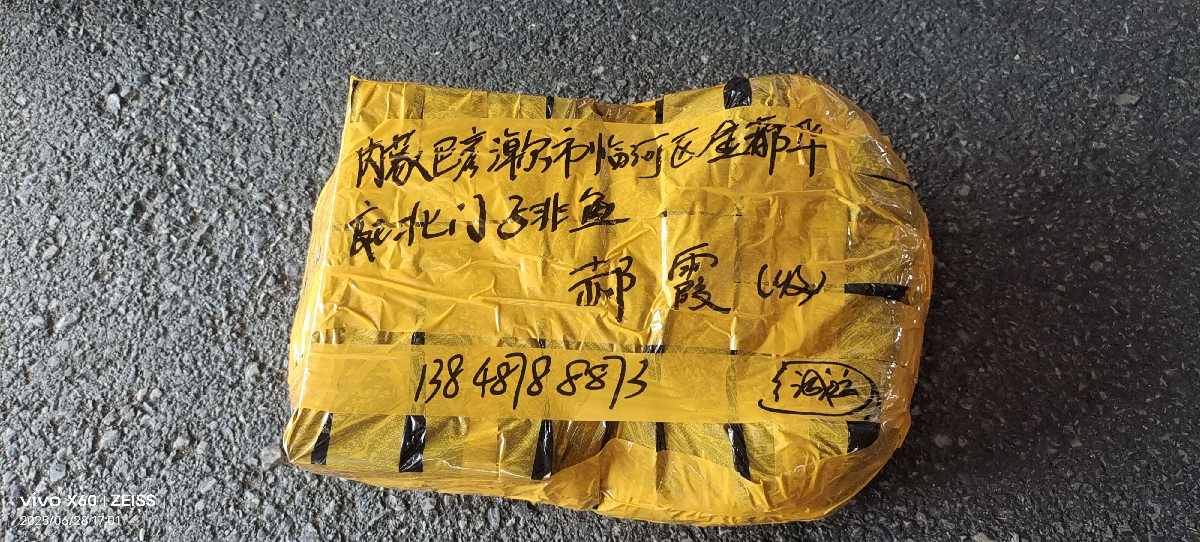 内蒙巴彦淖尔市临河区金都华
庭北门子非鱼
郝霞（收）
13848788873
vivo X60 | ZEISS
2025/06/28 17:01